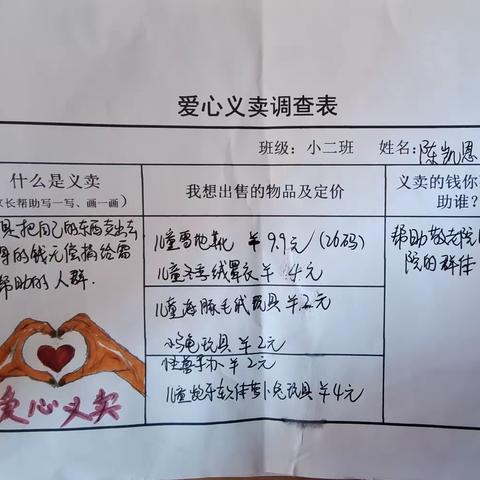 爱心义卖调查表
班级：小二班 姓名：陈凯恩
什么是义卖
家长帮助写一写、画一画）
我想出售的物品及定价
义卖的钱你
助谁？
是把自己的东西卖出去
得的钱无偿捐给需
帮助的人群.
爱心义卖
儿童雪地靴 ￥9.9元/(26码)
儿童冬季绒罩衣 ￥4元
儿童海豚毛绒玩具￥2元
乌龟玩具￥2元
怪兽手办￥2元
儿童软体萝卜兔玩具￥4元
帮助敬老院
院的群体